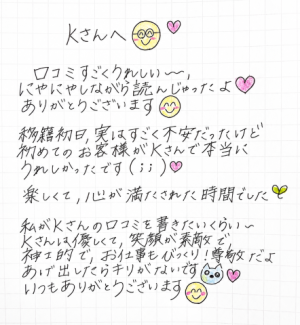 Kさんへ
口コミすごくうれしい〜、
にやにやしながら読んじゃったよ
ありがとうございます
移籍初日、実はすごく不安だったけど
初めてのお客様がKさんで本当に
うれしかったです(;;)
楽しくて、心が満たされた時間でした
私がKさんの口コミを書きたいくらい〜
Kさんは優しくて、笑顔が素敵で、
紳士的で、お仕事もびっくり!尊敬だよ
あげ出したらキリがないです
いつもありがとうございます